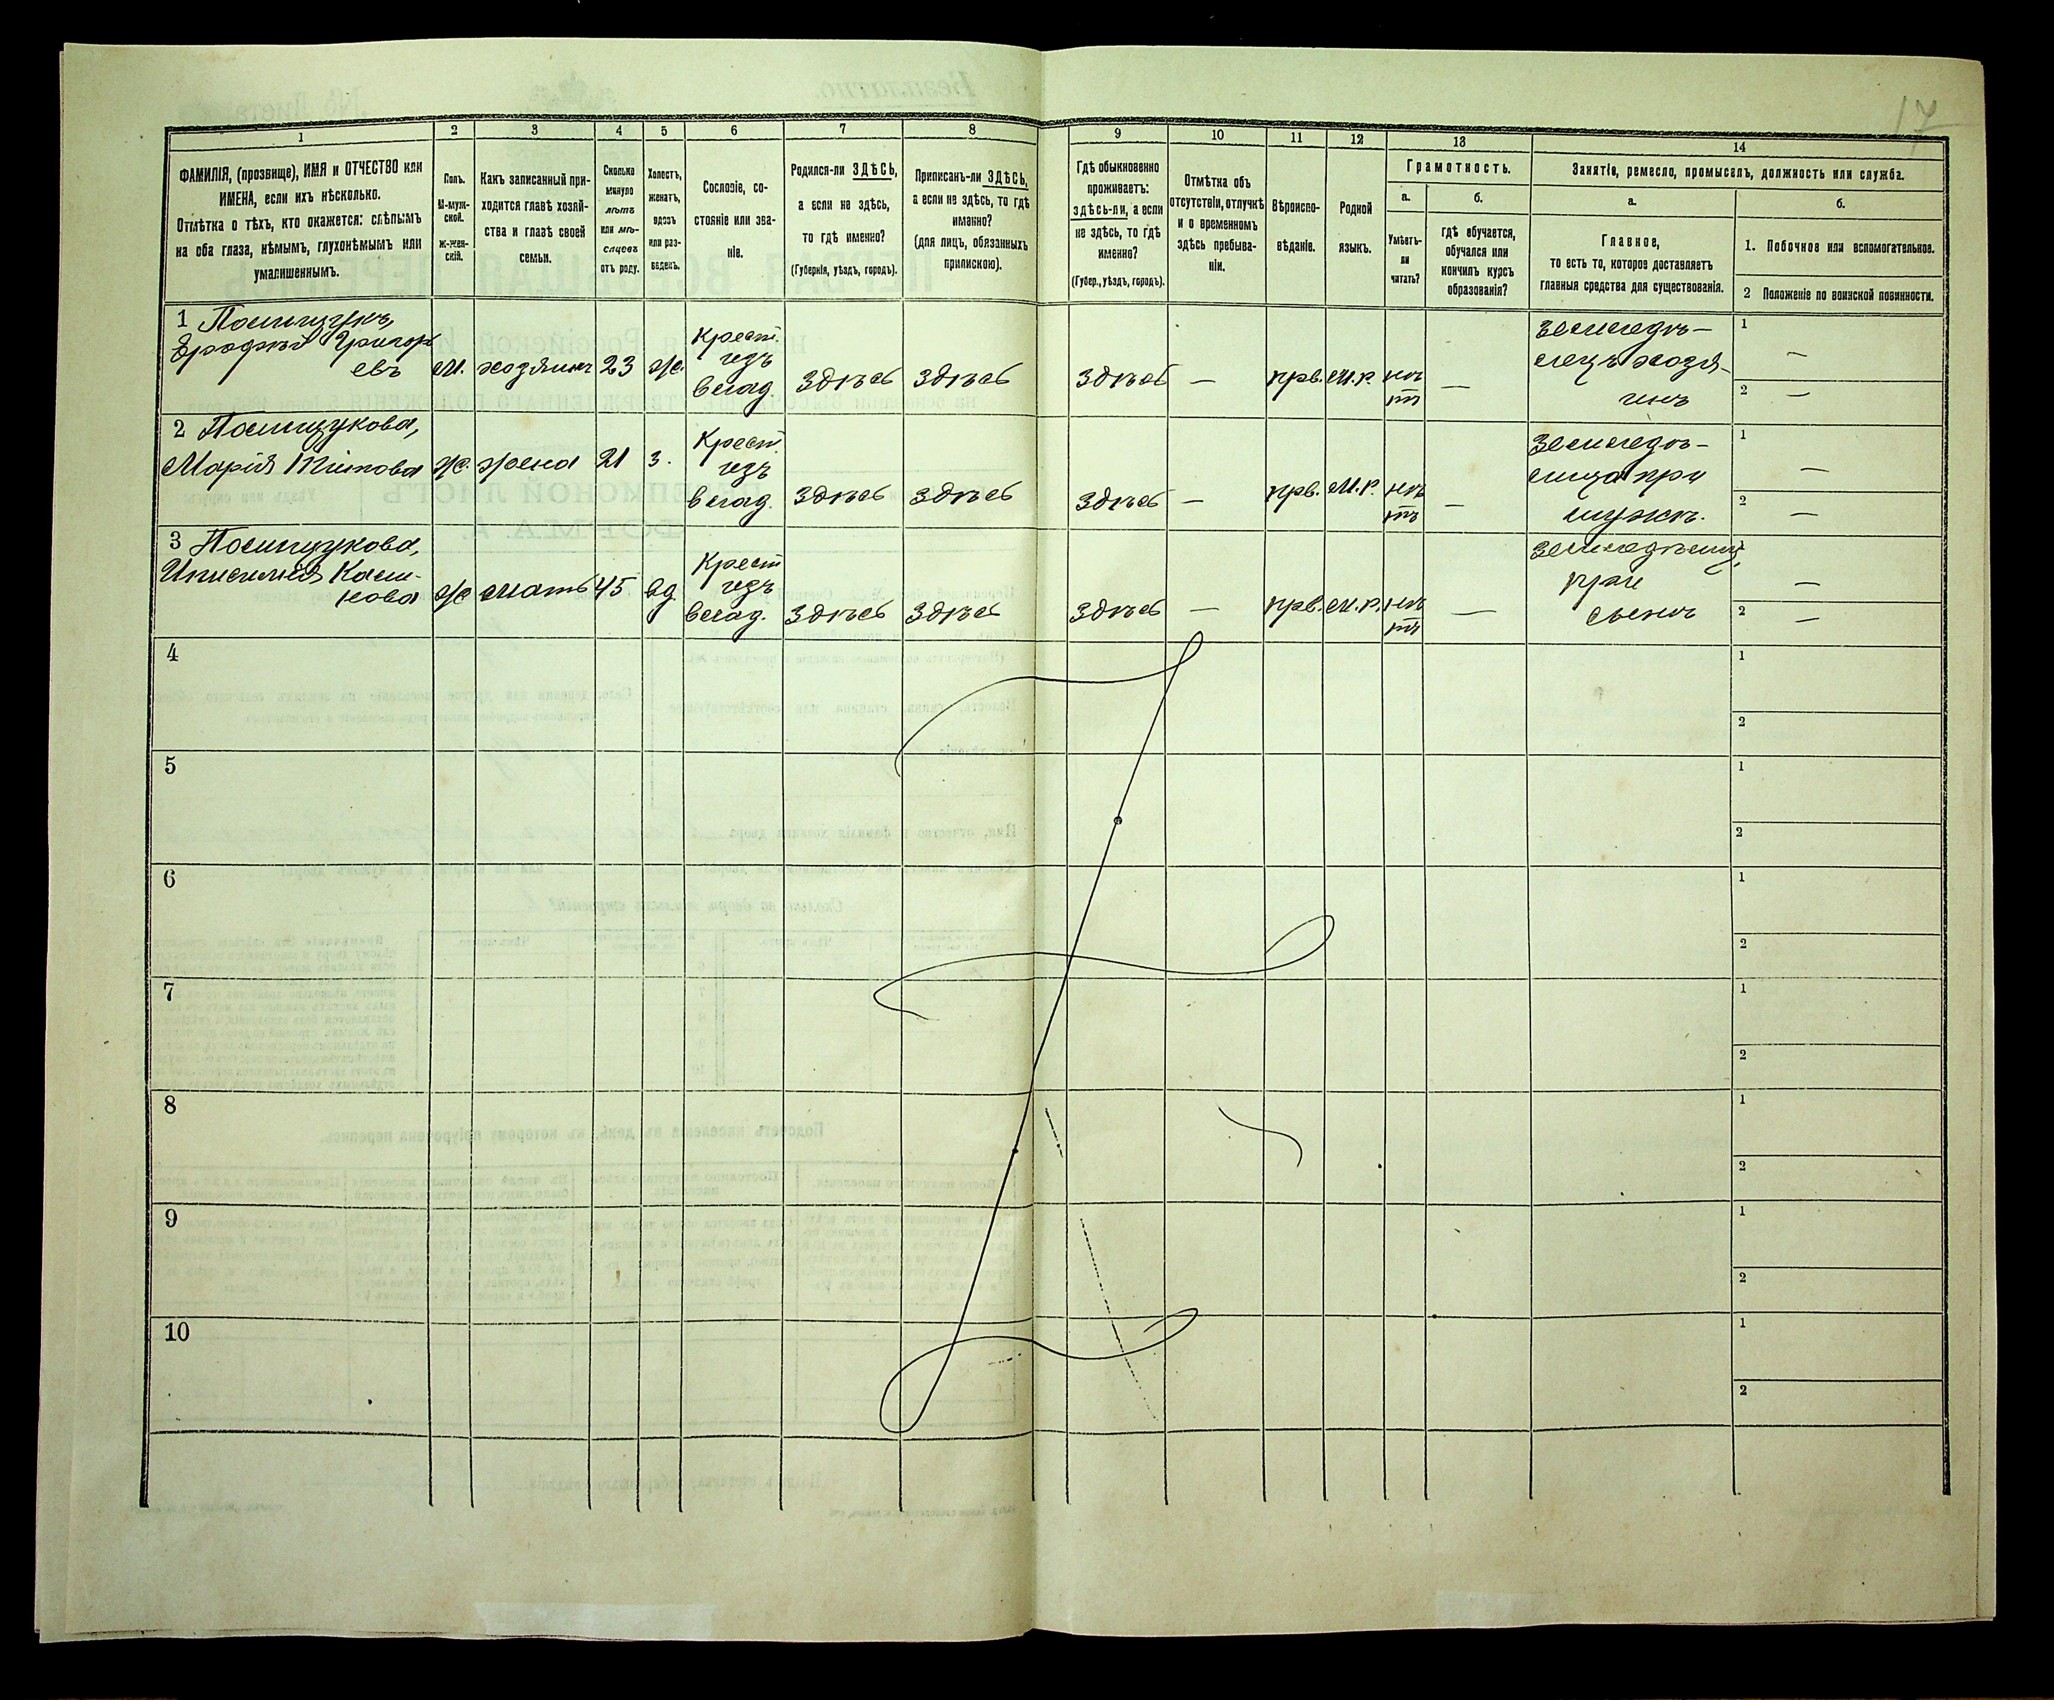 17
1
2
3
4
5
6
7
8
9
10
11
12
13
14
ФАМИЛІЯ, (прозвище), ИМЯ и ОТЧЕСТВО или
ИМЕНА, если ихъ нѣсколько.
Отмѣтка о тѣхъ, кто окажется: слѣпымъ
на оба глаза, нѣмымъ, глухонѣмымъ или
умалишеннымъ.
Полъ.
М-муж-
ской.
Ж-жен-
скій.
Какъ записанный при-
ходится главѣ хозяй-
ства и главѣ своей
семьи.
Сколько
минуло
лѣтъ
или мѣ-
сяцевъ
отъ роду.
Холостъ,
женатъ,
вдовъ
или раз-
веденъ.
Сословіе, со-
стояніе или зва-
ніе.
Родился-ли ЗДѢСЬ,
а если не здѣсь,
то гдѣ именно?
(Губернія, уѣздъ, городъ).
Приписанъ-ли ЗДѢСЬ,
а если не здѣсь, то гдѣ
именно?
(для лицъ, обязанныхъ
припискою).
Гдѣ обыкновенно
проживаетъ:
здѣсь-ли, а если
не здѣсь, то гдѣ
именно?
(Губер., уѣздъ, городъ).
Отмѣтка объ
отсутствіи, отлучкѣ
и о временномъ
здѣсь пребыва-
ніи.
Вѣроиспо-
вѣданіе.
Родной
языкъ.
Грамотность.
а.
Умѣетъ-
ли
читать?
б.
гдѣ обучается,
обучался или
кончилъ курсъ
образованія?
Занятіе, ремесло, промыселъ, должность или служба.
а.
Главное,
то есть то, которое доставляетъ
главныя средства для существованія.
б.
1. Побочное или вспомогательное.
2 Положеніе по воинской повинности.
1 Полищукъ,
Ерофей Григорь
евъ
м. хозяинъ 23 ж.
Крест.
изъ
влад.
здѣсь здѣсь здѣсь — прв. м.р. нѣ
тъ —
земледѣ-
лецъ хозя-
инъ
1 —
2 —
2 Полищукова,
Марія Титова ж. жена 21 з.
Крест.
изъ
влад.
здѣсь здѣсь здѣсь — прв. м.р. нѣ
тъ —
земледѣ-
лица при
мужѣ.
1 —
2 —
3 Полищукова,
ж. мать 45 вд
Крест
изъ
влад.
здѣсь здѣсь здѣсь — прв. м.р. нѣ
тъ —
при
сынѣ
1 —
2 —
4
1
2
5
1
2
6
1
2
7
1
2
8
1
2
9
1
2
10
1
2